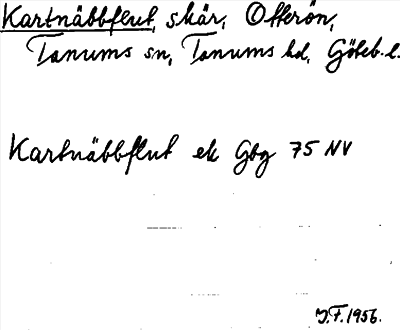 Kartnäbbflut, skär, Otterön,
Tanums sn, Tanums hd, Göteb. l.
Kartnäbbflut ek Gbg 75 NV
J.F. 1956.